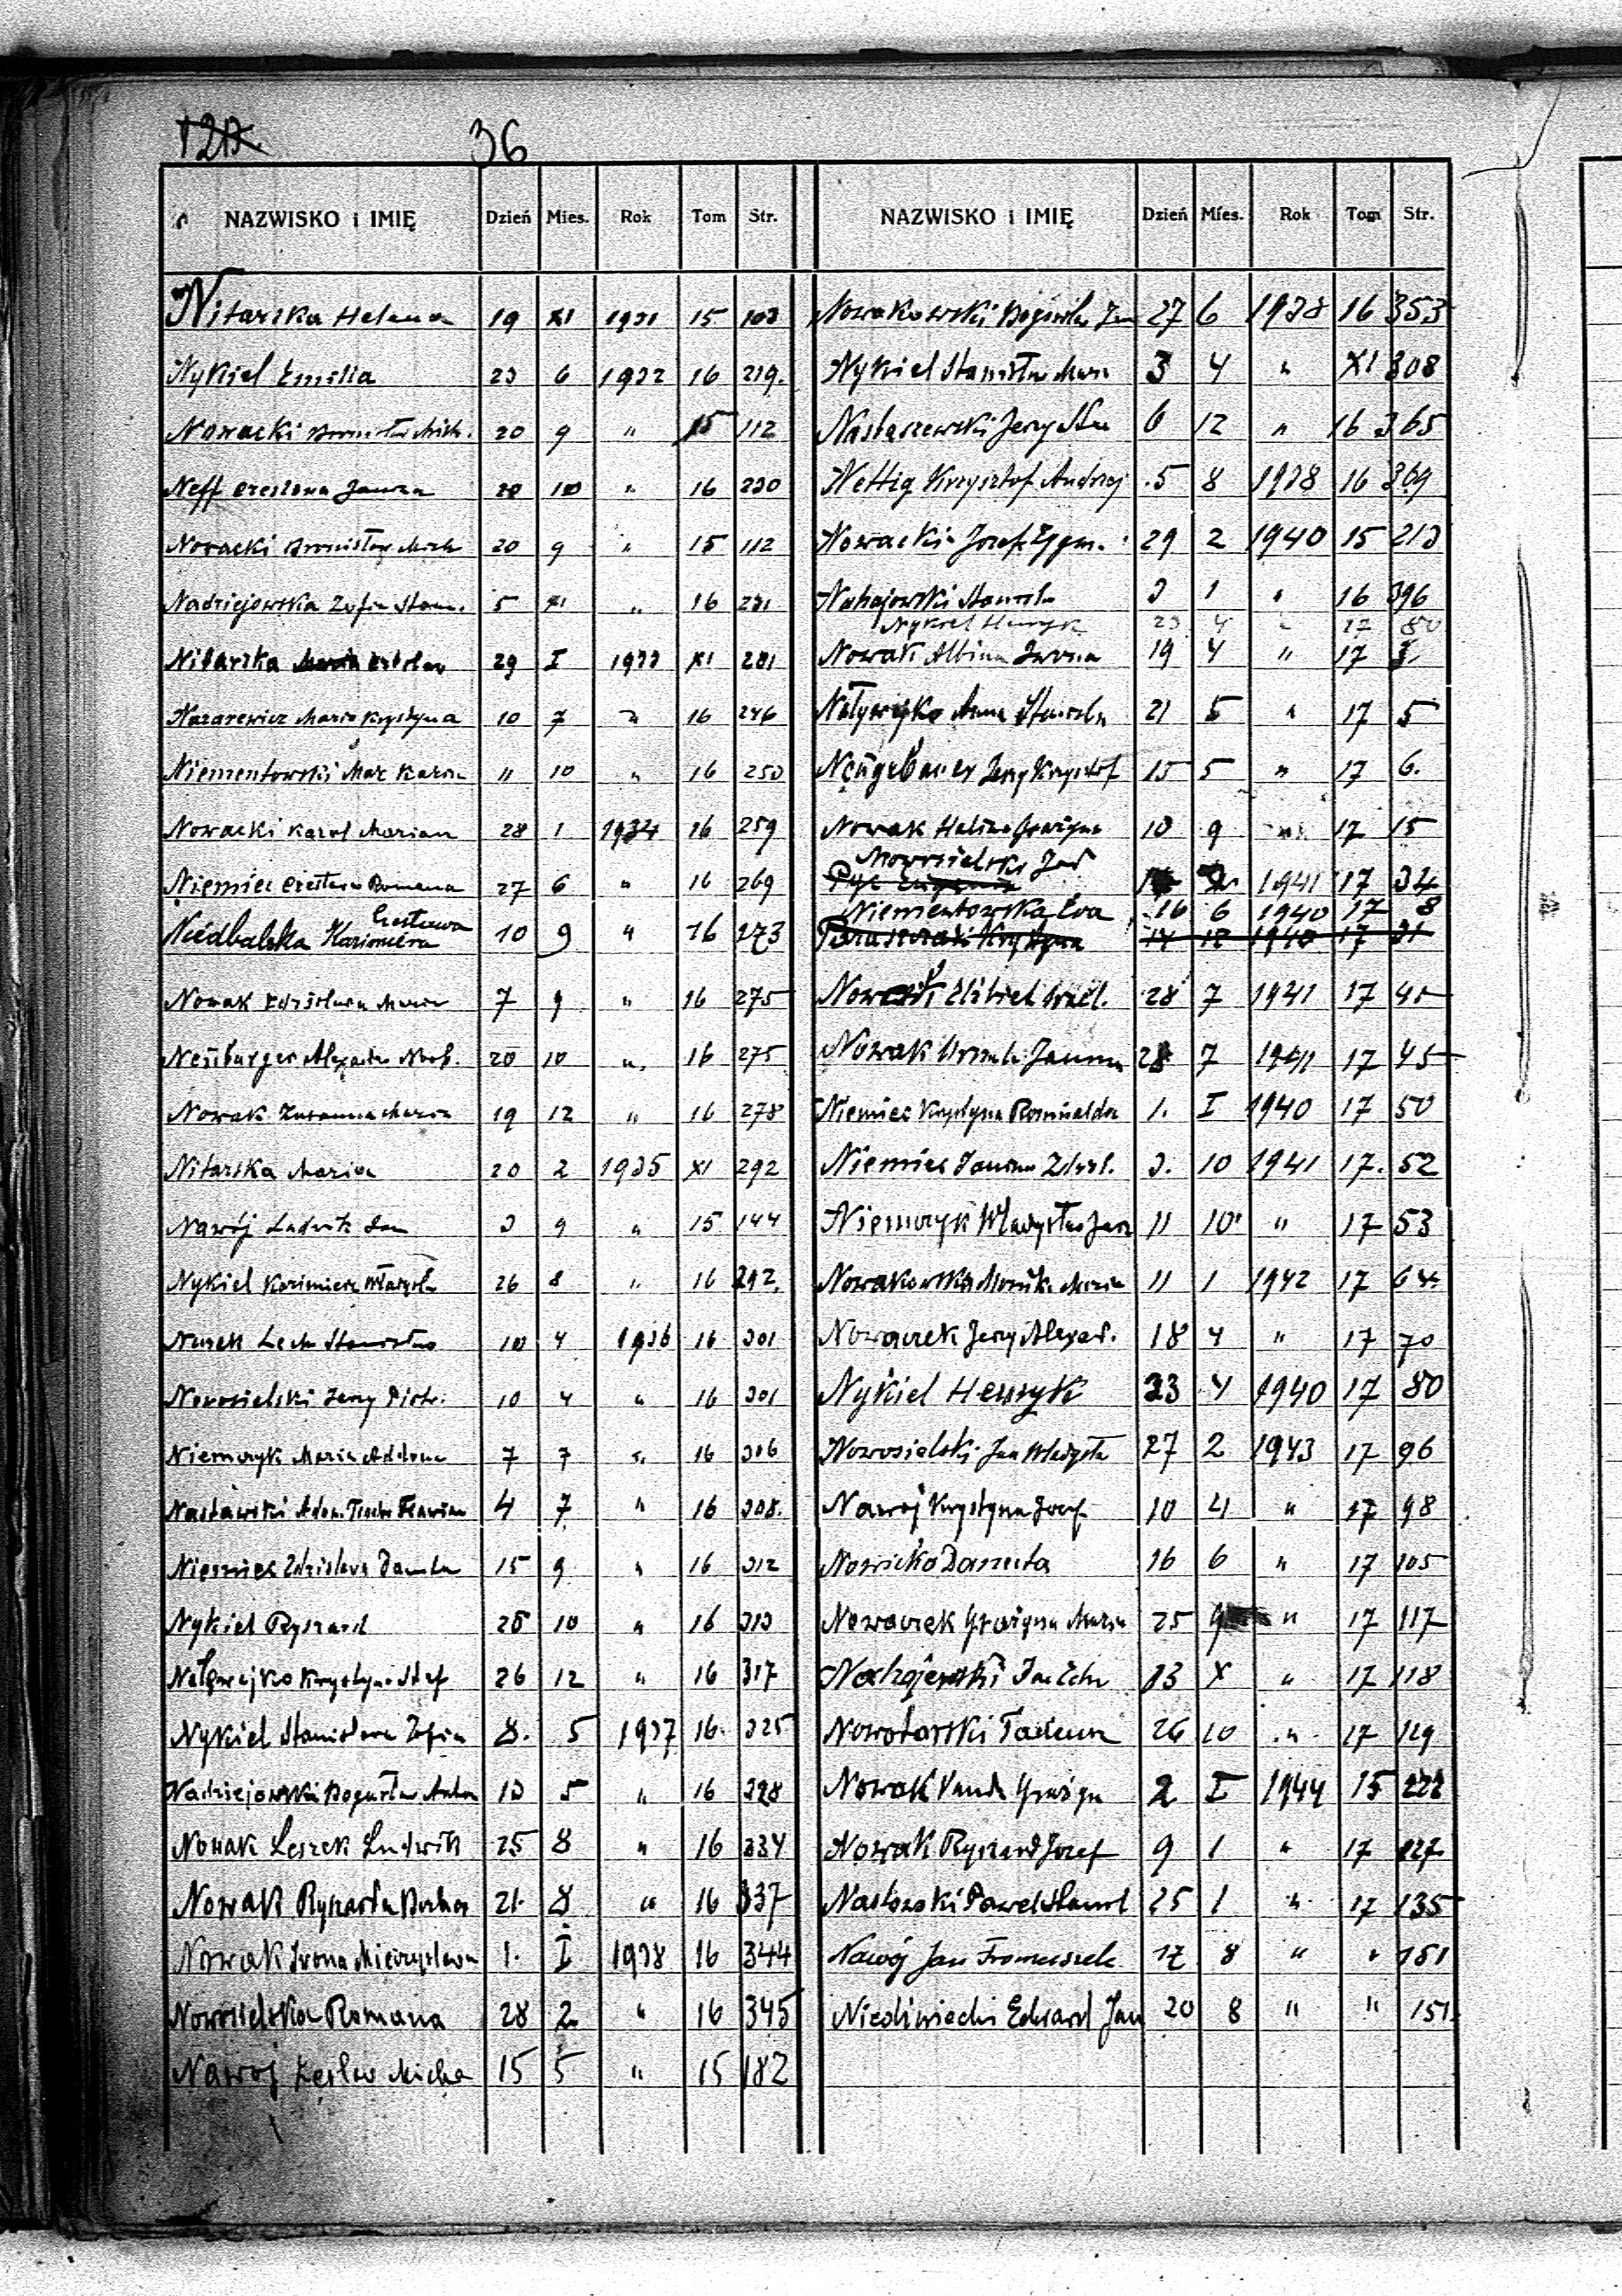 36
NAZWISKO i IMIĘ Dzień Mies. Rok Tom Str.
Nitarska Helena 19 XI 1931 15 103
Nykiel Emilia 23 6 1932 16 219.
Nowacki Bronisław Mich. 20 9 " 15 112
Neff Czesława Janina 10 " 16 230
Nowacki Bronisław Mich 20 9 " 15 112
Nadziejowska Zofia Stan. 5 XI " 16 231
Nitarska Czesław 29 I 1933 XI 281
Nazarewicz Maria Krystyna 10 7 " 16 246
Niementowski Mar Kazim 11 10 " 16 250
Nowacki Karol Marian 28 1 1934 16 259
Niemiec Czesława Romana 27 6 " 16 269
Niedbalska Czesława Kazimiera 10 9 " 16 273
Nowak Zdzisława Maria 7 9 " 16 275
Neüburger Alexander Norb. 20 10 " 16 275
Nowak Zuzanna Maria 19 12 " 16 278
Nitarska Maria 20 2 1935 XI 292
Nawój Ludwik Jan 3 9 " 15 144
Nykiel Kazimierz Władysła 26 8 " 16 292.
Nurek Lech Stanisław 10 4 1936 16 301
Nowosielski Jerzy Piotr. 10 4 " 16 301
Niemczyk Maria 7 7 " 16 306
Nastawski Adam 4 7 " 16 308.
Niemiec Zdzisława Danuta 15 9 " 16 312
Nykiel Ryszard 25 10 " 16 313
Nałęwajko Krystyna Stef 26 12 " 16 317
Nykiel Stanisława Zofia 8. 5 1937 16. 325
Nadziejowski Bogusław Anton 13 5 " 16 328
Nowak Leszek Ludwik 25 8 " 16 334
Nowak Ryszarda Barbar 21. 8 " 16 337
Nowak Iwona Mieczysława 1. I 1938 16 344
Nowosielska Romana 28 2 " 16 345
Nawoj Zesław Micha 15 5 " 15 182
NAZWISKO i IMIĘ Dzień Mies. Rok Tom Str.
Nowakowski Bogusław Jan 27 6 1938 16 353
Nykiel Stanisław Marian 3 4 " XI 308
Nastaszewski Jerzy 6 12 " 16 365
Nettig Krzysztof Andrzej 5 8 1938 16 369
Nowacki Józef Zygm. 29 2 1940 15 213
Nahajowski Stanisła 3 1 " 16 396
Nykiel Henryk 23 4 " 17 80
Nowak Albina Iwona 19 4 " 17
Naływajko Anna Stanisła 21 5 " 17 5
Neügebauer Jerzy Krzysztof 15 5 " 17 6.
Nowak Halina Grażyna 10 9 17 15
Nowosielski Jad
1941 17 34
Niementowska Ewa 16 6 1940 17 8
14 12 1940 17 31
Elżbiet 28 7 1941 17 45
Nowak Urszula Janina 28 7 1941 17 45
Niemiec Krystyna Romualda 1. I 1940 17 50
Niemiec Janina Zdzisł. 3. 10 1941 17. 52
Niemczyk Władysław Jerz 11 10 " 17 53
Nowakowska Monika Maria 11 1 1942 17 64
Nowaczek Jerzy Alexan. 18 4 " 17 70
Nykiel Henryk 23 4 1940 17 80
Nowosielski Jan Władysła 27 2 1943 17 96
Nawój Krystyna Józef 10 4 " 17 98
Nowicko Danuta 16 6 " 17 105
Nowaczek Grażyna Maria 25 9 " 17 117
Nahajewski Jan 13 X " 17 118
Nowotarski Tadeusz 26 10 " 17 129
Nowak Vanda Grażyn 2 I 1944 15 222
Nowak Ryszard Józef 9 1 " 17 127
Paweł 25 1 " 17 135
Nawój Jan Franciszek 17 8 " " 151
Niedźwiecki Edward Jan 20 8 " " 151